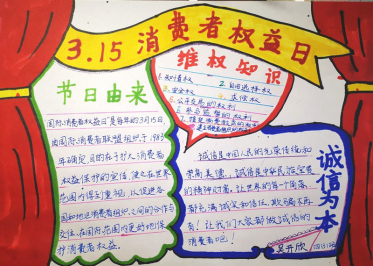 3.15消费者权益日
维权知识
1.知情权
2.自由选择权
3.安全权
4.求偿权
5.公平交易的权利
节日由来
国际消费者权益日"是每年的3月15日,
由国际消费者联盟组织于1983
年确定,目的在于扩大消费者
权益保护的宣传,使之在世界
范围内得到重视,以促进各
国和地区消费者组织之间的合作与
交往,在国际范围内更好地保
护消费者权益。
诚信是中国人民的光荣传统和
崇高美德,诚信是中华民族宝贵
的精神财富,让世界的每一个角落
都充满诚义和信任,欺骗不再
有!让我们大家都做诚信的
消费者吧!
诚信为本